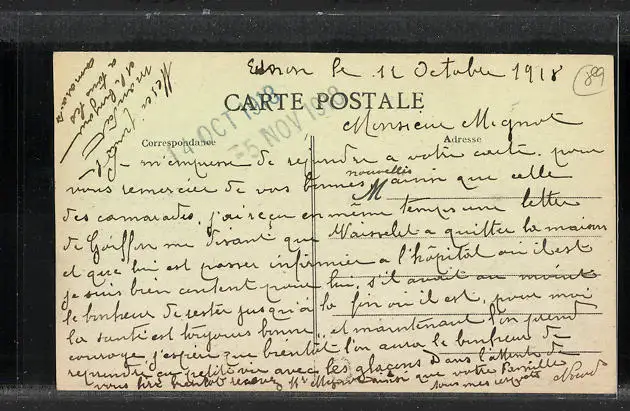 le 12 Octobre 1918
89
CARTE POSTALE
14 OCT 1918
5 NOV 1918
Monsieur Mignot
Correspondance
Adresse
Je m'empresse de repondre a votre carte, pour
vous remercier de vos bonnes nouvelles ainsi que celle
des camarades, j'ai reçu en même temps une lettre
de me disant que Vaisselet a quitter la maison
et que lui est passer infirmier a l'hôpital ou il est
je suis bien content pour lui, s'il avait au moins
le bonheur de rester jusqu'à la fin ou il est, pour moi
la santé est toujours bonne, et maintenant l'on prend
courage j'espère que bientôt l'on aura le bonheur de
reprendre sa petite vie avec les glaçons Dans l'attente de
vous lire bientôt recevez Mr Mignot ainsi que votre Famille
tous mes respects
a tous les
camarades